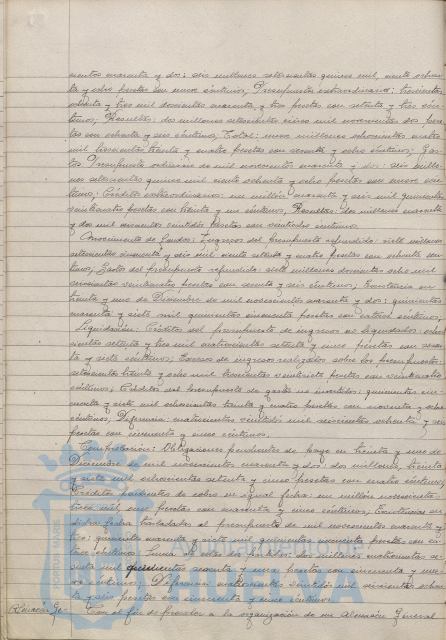 cientos cuarenta y dos: seis millones setecientas quince mil, ciento ochen-
ta y ocho pesetas con nueve céntimos; Presupuestos extraordinarios: trescientas
ochenta y tres mil doscientas cuarenta y tres pesetas con setenta y tres cén-
timos; Resultas: dos millones setecientas cinco mil novecientas dos pese-
tas con ochenta y seis céntimos; Total: nueve millones ochocientas cuatro
mil trescientas treinta y cuatro pesetas con sesenta y ocho céntimos; Gas-
tos. Presupuesto ordinario de mil novecientos cuarenta y dos: seis millo-
nes setecientas quince mil ciento ochenta y ocho pesetas con nueve cén-
timos; Créditos extraordinarios: un millón cuarenta y seis mil quinientas
veinticuatro pesetas con treinta y un céntimos, Resultas: dos millones cuarenta
y dos mil cuarenta veintidós pesetas con veintidós céntimos.
Movimiento de fondos: Ingresos del presupuesto refundido: siete millones
setecientas cincuenta y seis mil ciento setenta y cuatro pesetas con ochenta cén-
timos; Gastos del presupuesto refundido: siete millones doscientas ocho mil
seiscientas veinticuatro pesetas con sesenta y seis céntimos; Existencia en
treinta y uno de Diciembre de mil novecientos cuarenta y dos: quinientas
cuarenta y siete mil quinientas cincuenta pesetas con catorce céntimos.
Liquidación: Créditos del presupuesto de ingresos no liquidados: ocho-
cientas setenta y tres mil setenta y cinco pesetas con
y siete céntimos; Excesos de ingresos realizados sobre los presupuestos:
setecientas treinta y ocho mil veintisiete pesetas con
céntimos; Créditos del presupuesto de gastos no invertidos: quinientas cin-
cuenta y seis mil ochocientas treinta y cuatro pesetas con noventa y ocho
céntimos; Diferencia: cuatrocientas veintidós mil seiscientas ochenta y seis
pesetas con cincuenta y cinco céntimos.
Comprobación: Obligaciones pendientes de pago en treinta y uno de
Diciembre de mil novecientos cuarenta y dos: dos millones, treinta
y siete mil ochocientas setenta y cinco pesetas con céntimos;
Créditos pendientes de cobro en igual fecha: un millón novecientas
trece mil, once pesetas con cuarenta y cinco céntimos; Existencias en
dicha fecha trasladadas al presupuesto de mil novecientos cuarenta y
tres: quinientas cuarenta y siete mil quinientas cincuenta pesetas con ca-
torce céntimos. Suma de estos dos créditos: dos millones cuatrocientas se-
senta mil quinientas sesenta y una pesetas con cincuenta y nue-
ve céntimos; Diferencia cuatrocientas veintidós mil seiscientas ochen-
ta y seis pesetas con cincuenta y cinco céntimos.
Con el fin de proceder a la organización de un Almacén General